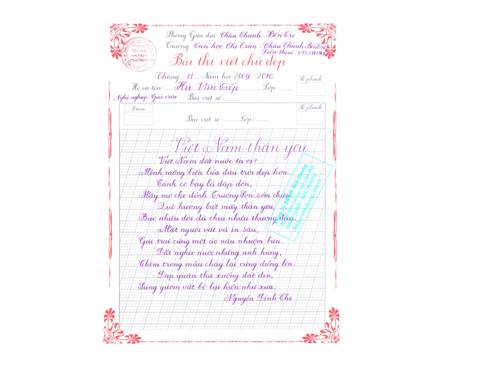 Phòng Giáo dục Châu Thành - Bến Tre
Trường Tiểu học Thị Trấn - Châu Thành Bến Tre
Điện thoại
Bài thi viết chữ đẹp
Tháng 11 Năm học 2009 2010
Họ và tên: Hà Văn Tiếp Lớp
Nghề nghiệp: Giáo viên Bài viết số
Số phách
Điểm
Bài viết số Lớp
Số phách
Việt Nam thân yêu
Việt Nam đất nước ta ơi!
Mênh mông biển lúa đâu trời đẹp hơn.
Cánh cò bay lả dập dờn,
Mây mờ che đỉnh Trường Sơn sớm chiều.
Quê hương biết mấy thân yêu,
Bao nhiêu đời đã chịu nhiều thương đau,
Mặt người vất vả in sâu,
Gái trai cũng một áo nâu nhuộm bùn
Đất nghèo nuôi những anh hùng,
Chìm trong máu chảy lại vùng đứng lên
Đạp quân thù xuống đất đen,
Súng gươm vứt bỏ lại hiền như xưa.
Nguyễn Đình Thi